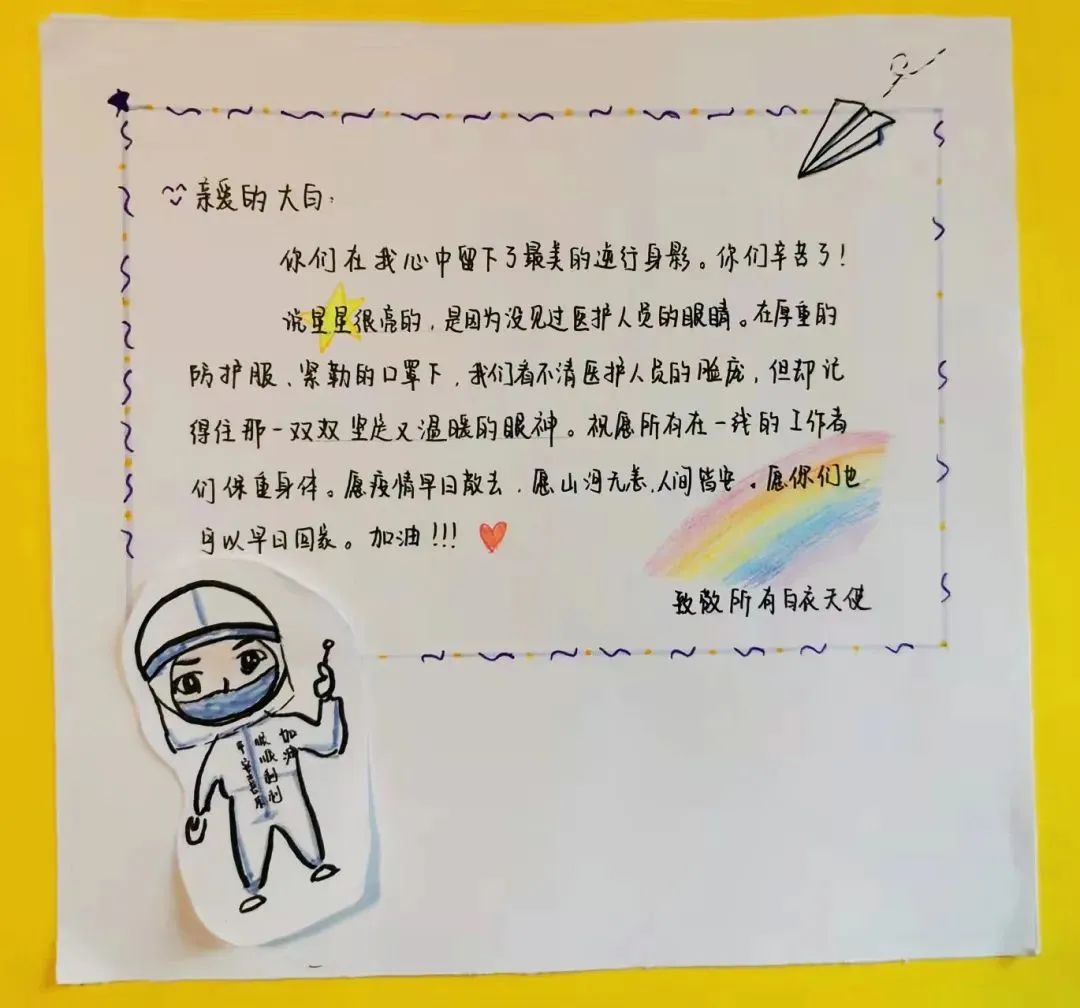 亲爱的大白:
你们在我心中留下了最美的逆行身影。你们辛苦了!
说星星很亮的,是因为没见过医护人员的眼睛。在厚重的
防护服、紧勒的口罩下,我们看不清医护人员的脸庞,但却记
得住那一双双坚定又温暖的眼神。祝愿所有在一线的工作者
们保重身体。愿疫情早日散去,愿山河无恙,人间皆安。愿你们也
可以早日回家。加油!!!
致敬所有白衣天使
加油
顺顺利利
平安喜乐